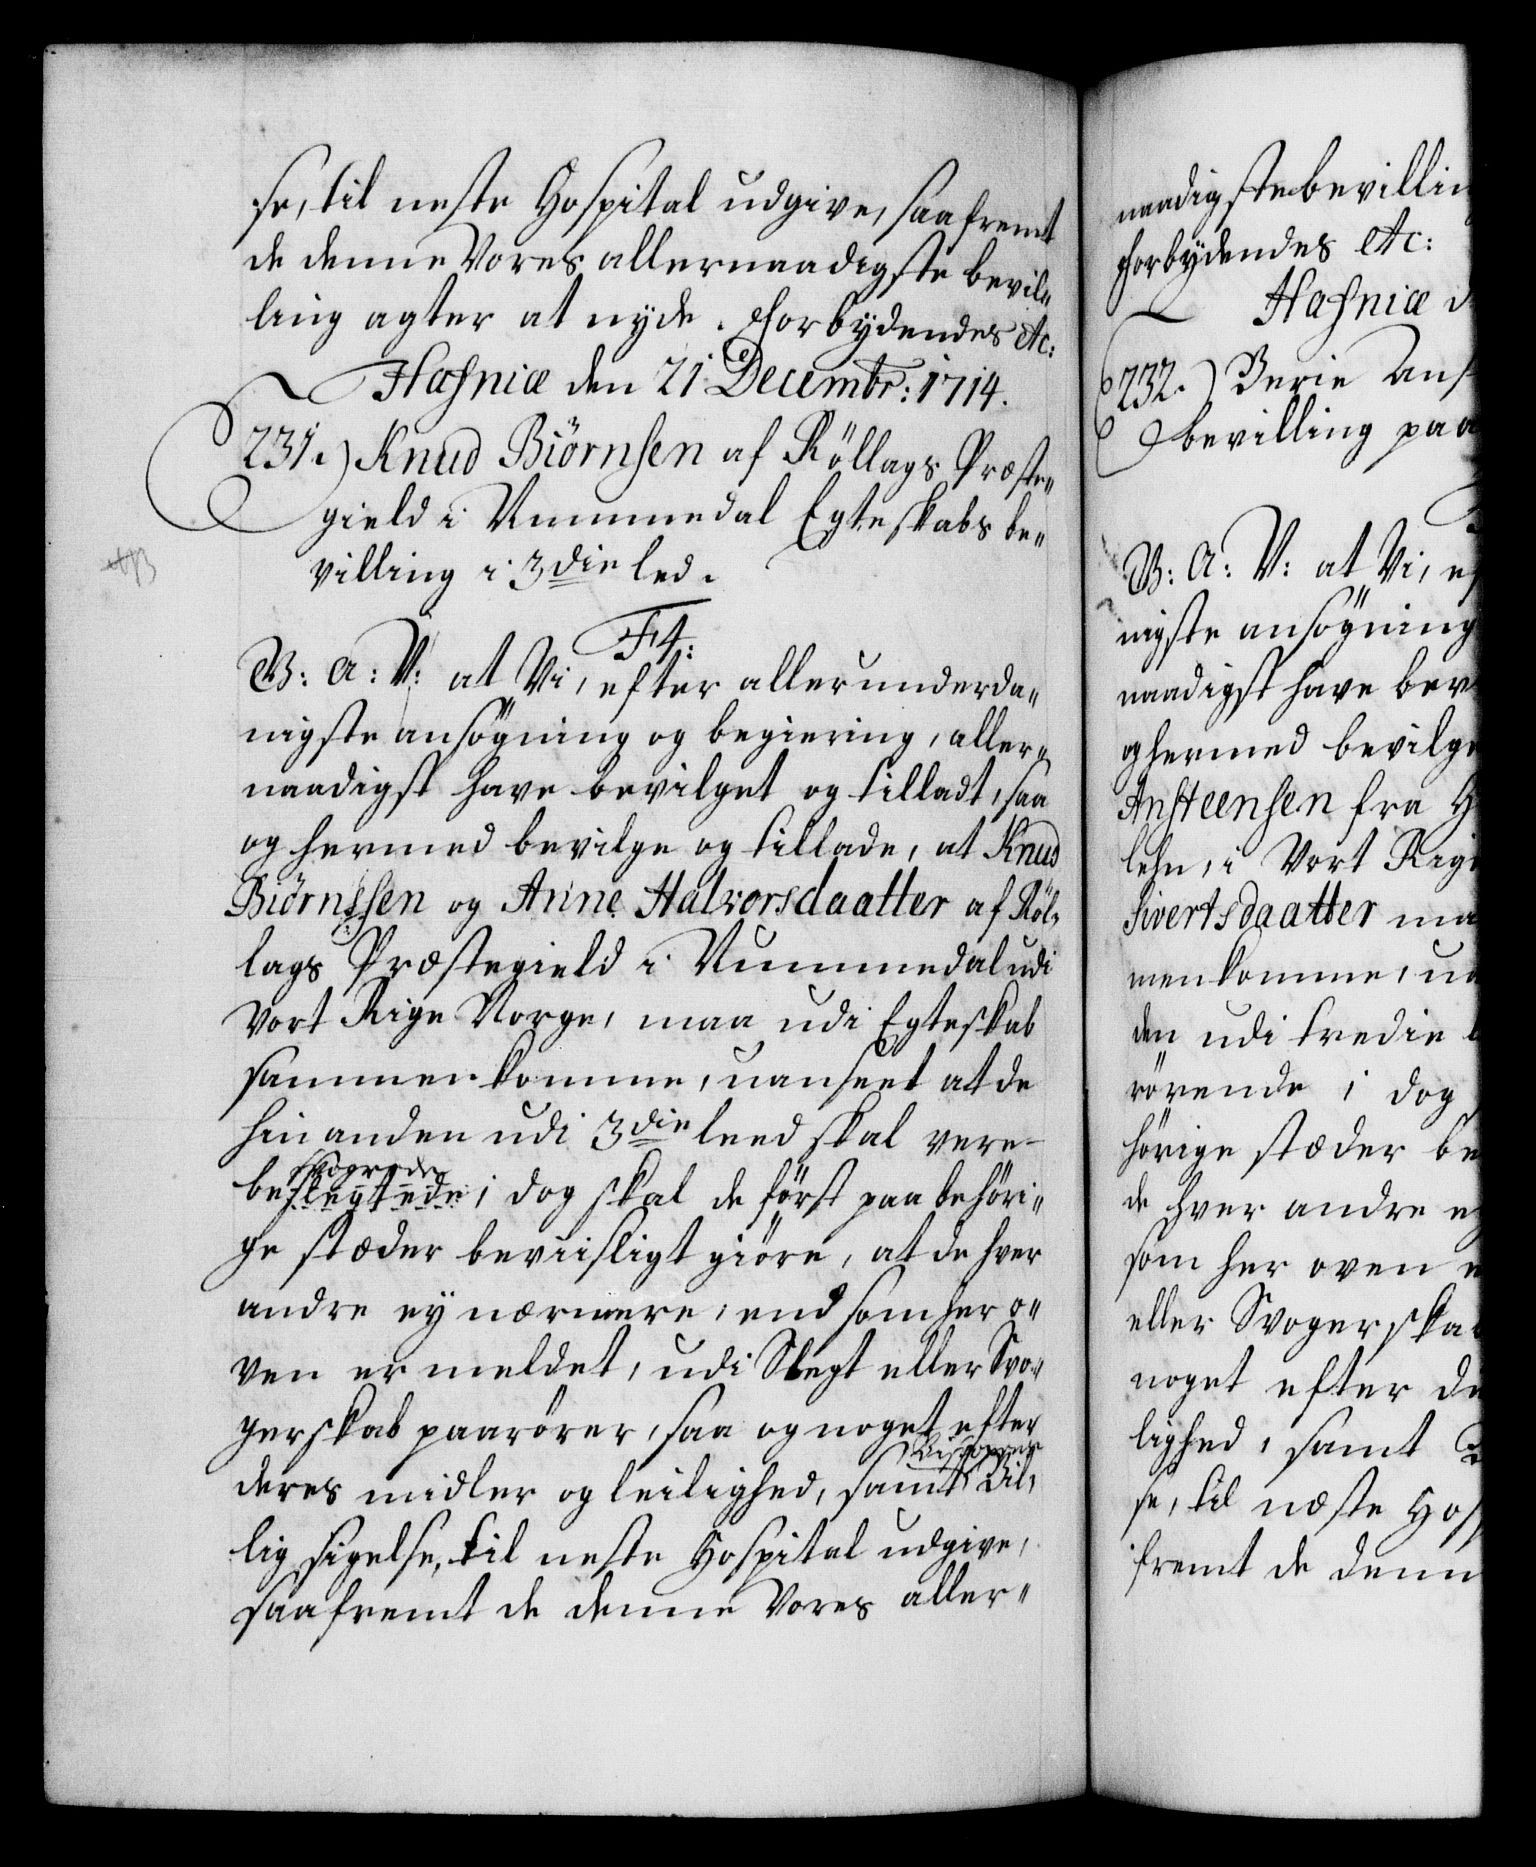 se, til neste Hospital udgive, saafremt
de denne Vores allernaadigste bevil„
ling agter at nyde. Forbydendes etc:
Hafniæ den 21 Decembr: 1714.
231.) Knud Biörnsen af Röllags Præste„
gield i Nummedal Egteskabs be„
villing i 3die led.
F4:
G: A: V: at Vi, efter allerunderda„
nigste ansögning og begiering, aller„
naadigst have bevilget og tilladt, saa
og hermed bevilge og tillade, at Knud
Biörnssen og Anne Halvorsdaatter af Röl„
lags Præstegield i Nummedal udi
Vort Rige Norge, maa udi Egteskab
sammenkomme, uanseet at de
hin anden udi 3die leed skal vere
besvogrede
beslegtede; dog skal de först paa behöri„
ge stæder beviisligt giöre, at de hver
andre ey nærmere, end som her o„
ven er meldet, udi Slegt eller Svo„
gerskab paarörer, saa og noget efter
deres midler og leilighed, samt Bil„
lig sigelse, til neste Hospital udgive,
saafremt de denne Vores aller„
naadigste bevillin
Forbydendes etc:
Hafniæ d
232.) Berie Ans
bevilling paa
G: A: V: at Vi, ef
nigste ansögning
naadigst have bev
og hermed bevilge
Ansteensen fra H
lehn, i Vort Rige
Sivertsdaatter ma
menkomme, ua
den udi tredie l
rörende; dog
hörige stæder be
de hver andre e
som her oven e
eller Svogerska
noget efter de
lighed, samt B
se, til næste Hos
fremt de denn